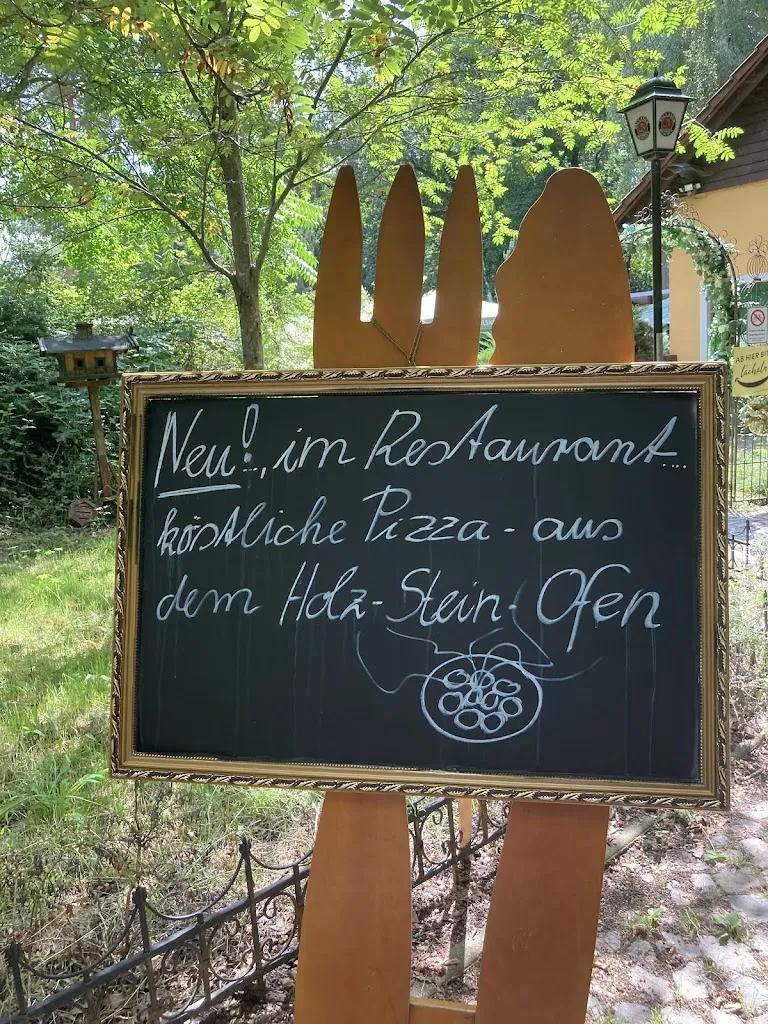 Neu!, im Restaurant...
köstliche Pizza - aus
dem Holz-Stein-Ofen
AB HIER BI
lächeln